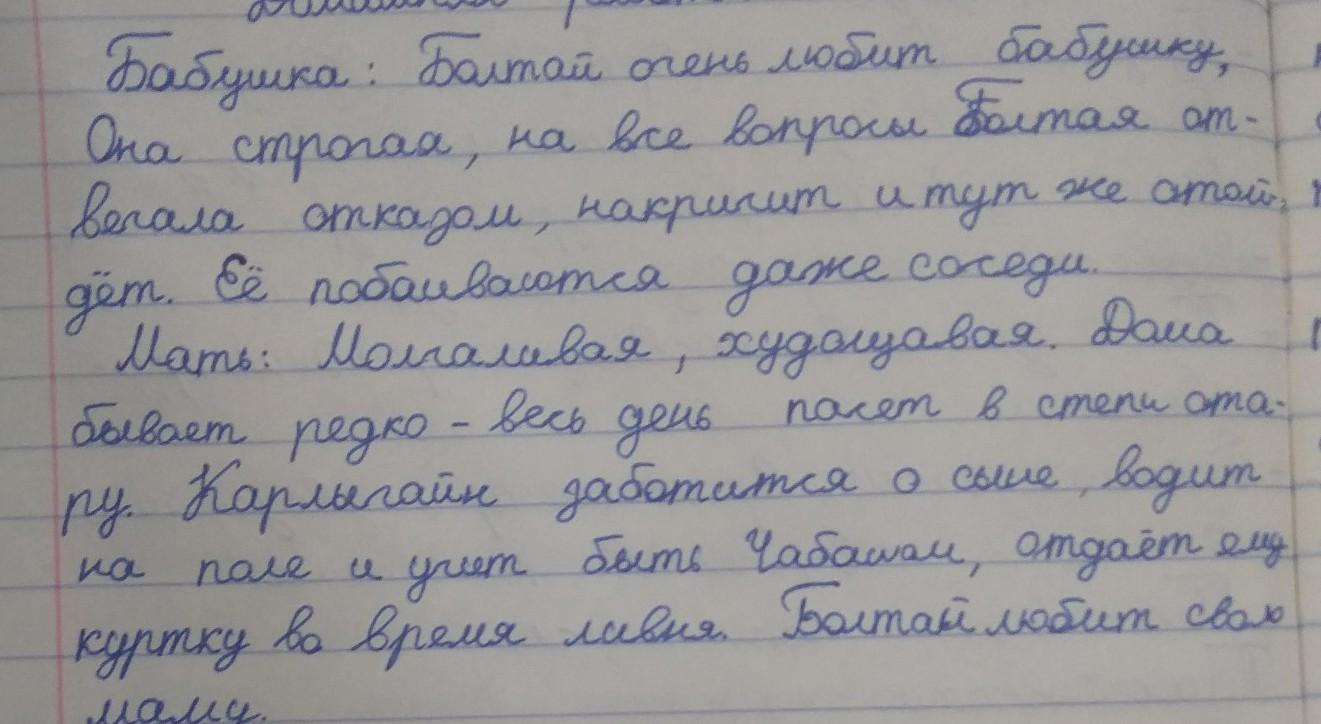 Домашняя работа
Бабушка: Болтай очень любит бабушку,
Она строгая, на все вопросы Болтая от-
вечала отказом, накричит и тут же отой-
дёт. Её побаиваются даже соседи.
Мать: Молчаливая, худощавая. Дома
бывает редко - весь день пасет в степи ота-
ру. Карлыгайн заботится о сыне, водит
на поле и учит быть Чабаном, отдаёт ему
куртку во время ливня. Болтай любит свою
маму.